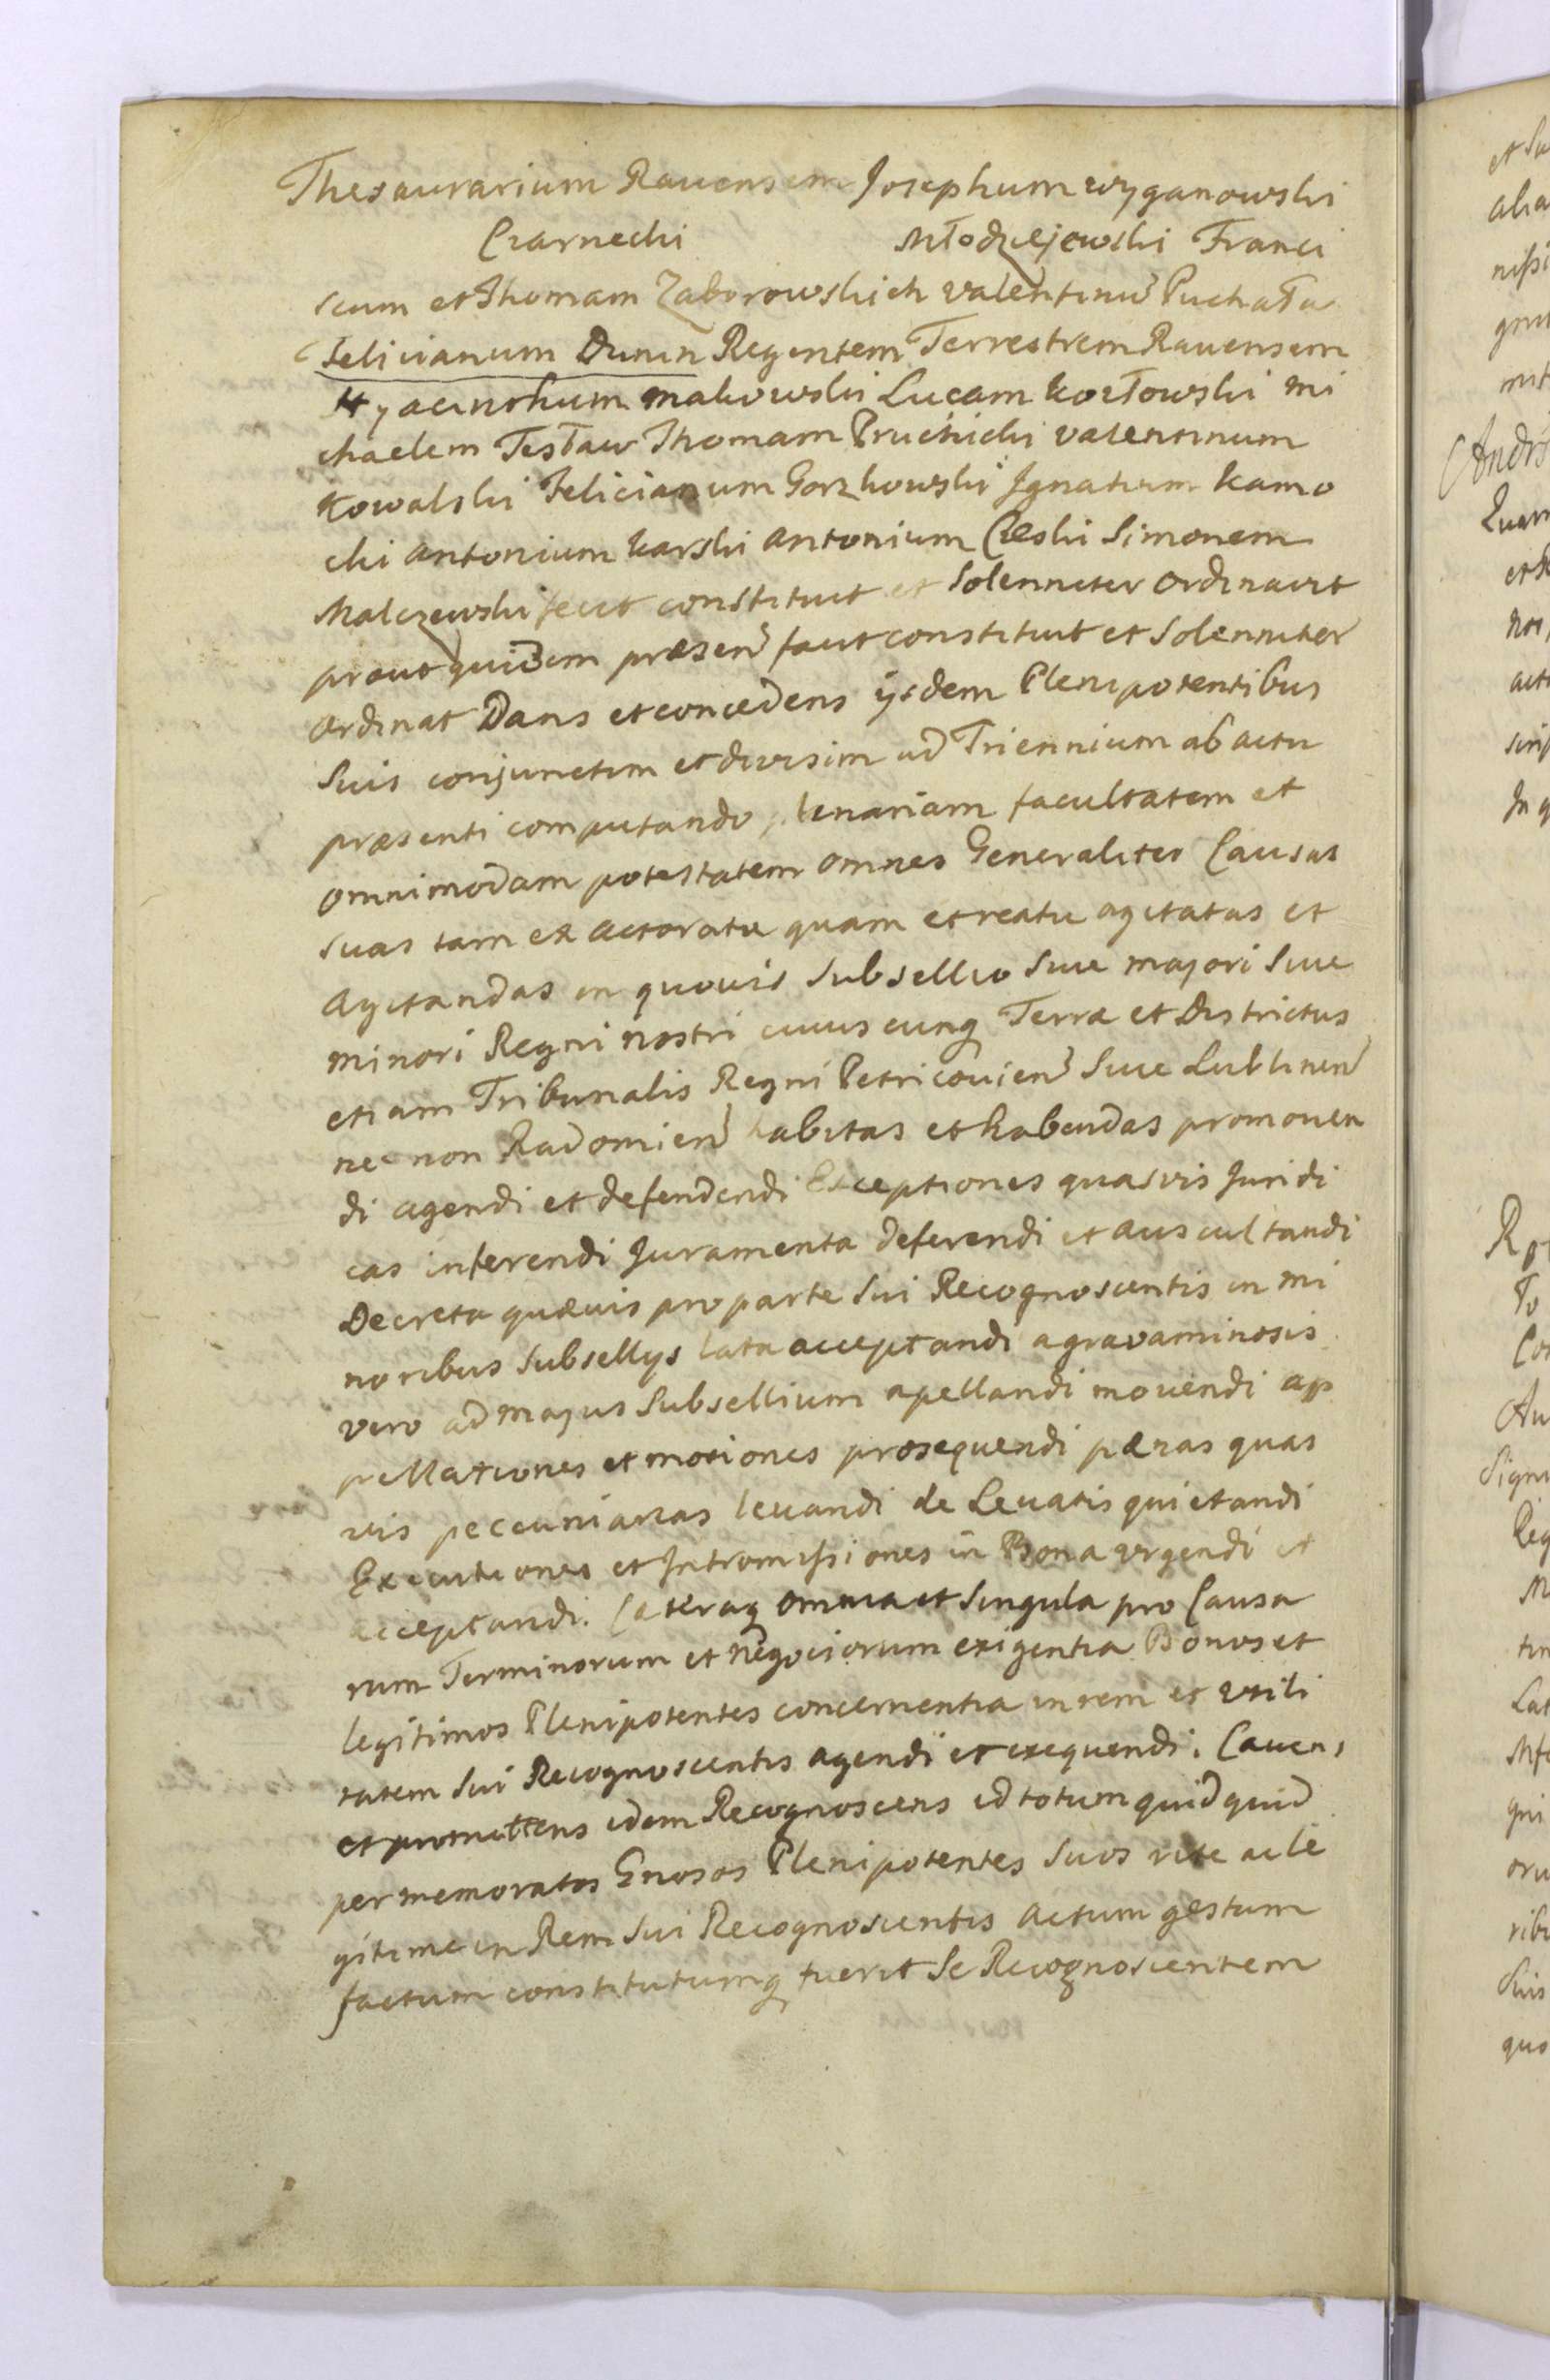 Thesaurarium Ravensem Josephum Wyganowski
Czarnecki Młodziejowski Franci
scum et Thomam Zaborowskich Valentinũ Puchała
Felicianum Dunin Regentem Terrestrem Ravensem
Hyacinthum Makowski Lucam Kozłowski Mi
chaelem Testaw Thomam Pruchicki Valentinum
Kowalski Felicianum Gorzkowski Ignatium Kamo
cki Antonium Karski Antonium Cieski Simonem
Malczewski fecit constituit et Solenniter Ordinavit
prout quidem præsen̄ facit constituit et Solenniter
Ordinat Dans et concedens ijsdem Plenipotentibus
Suis conjunctim et divisim ad Triennium ab actu
præsenti computando plenariam facultatem et
omnimodam potestatem omnes Generaliter Causas
suas tam ex actoratu quam et reatu agitatas et
agitandas in quovis Subsellio Sive majori Sive
minori Regni nostri cuiuscunq Terræ et Districtus
etiam Tribunalis Regni Petricovien̄ Sive Lublinen̄
nec non Radomien̄ habitas et habendas promoven
di agendi et defendendi Exceptiones quasvis Juridi
cas inferendi Juramenta deferendi et auscultandi
Decreta quævis pro parte Sui Recognoscentis in mi
noribus Subsellys lata acceptandi a gravaminosis
vero ad majus Subsellium apellandi movendi ap
pellationes et motiones prosequendi pænas quas
vis pecuniarias levandi de Levatis quietandi
Executiones et Intromissiones in Bona urgendi et
acceptandi. Cæteraq omnia et Singula pro Causa
rum Terminorum et Negociorum exigentia Bonos et
legitimos Plenipotentes concernentia in rem et utili
tatem Sui Recognoscentis agendi et exequendi. Cavens
et promittens idem Recognoscens id totum quidquid
per memoratos Gnosos Plenipotentes Suos rite ac le
gitime in Rem Sui Recognoscentis actum gestum
factum constitutumq fuerit Se Recognoscentem